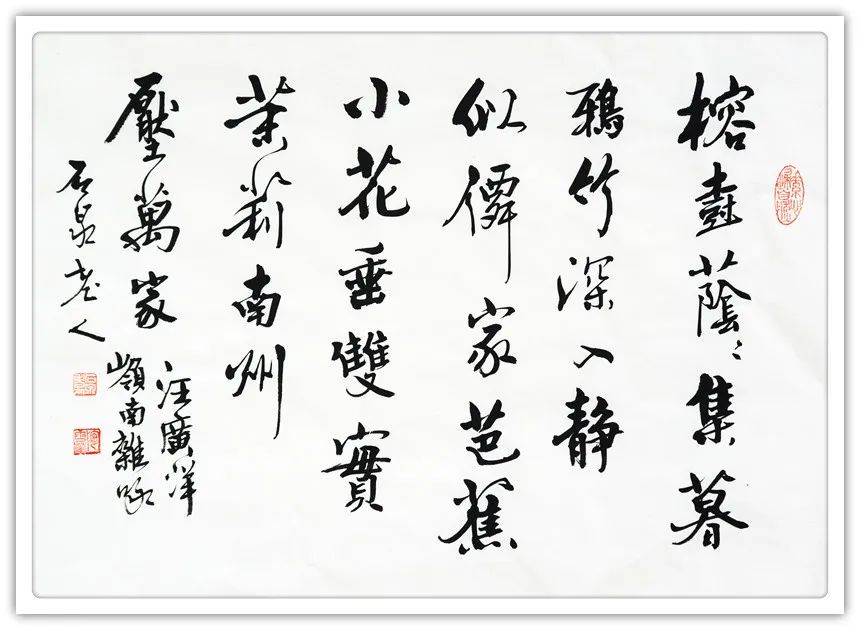 榕尌蔭々集暮
鴉竹深人静
似僊家芭蕉
小花垂雙實
茉莉南州
壓萬家
汪廣洋
嶺南雜咏
石泉老人